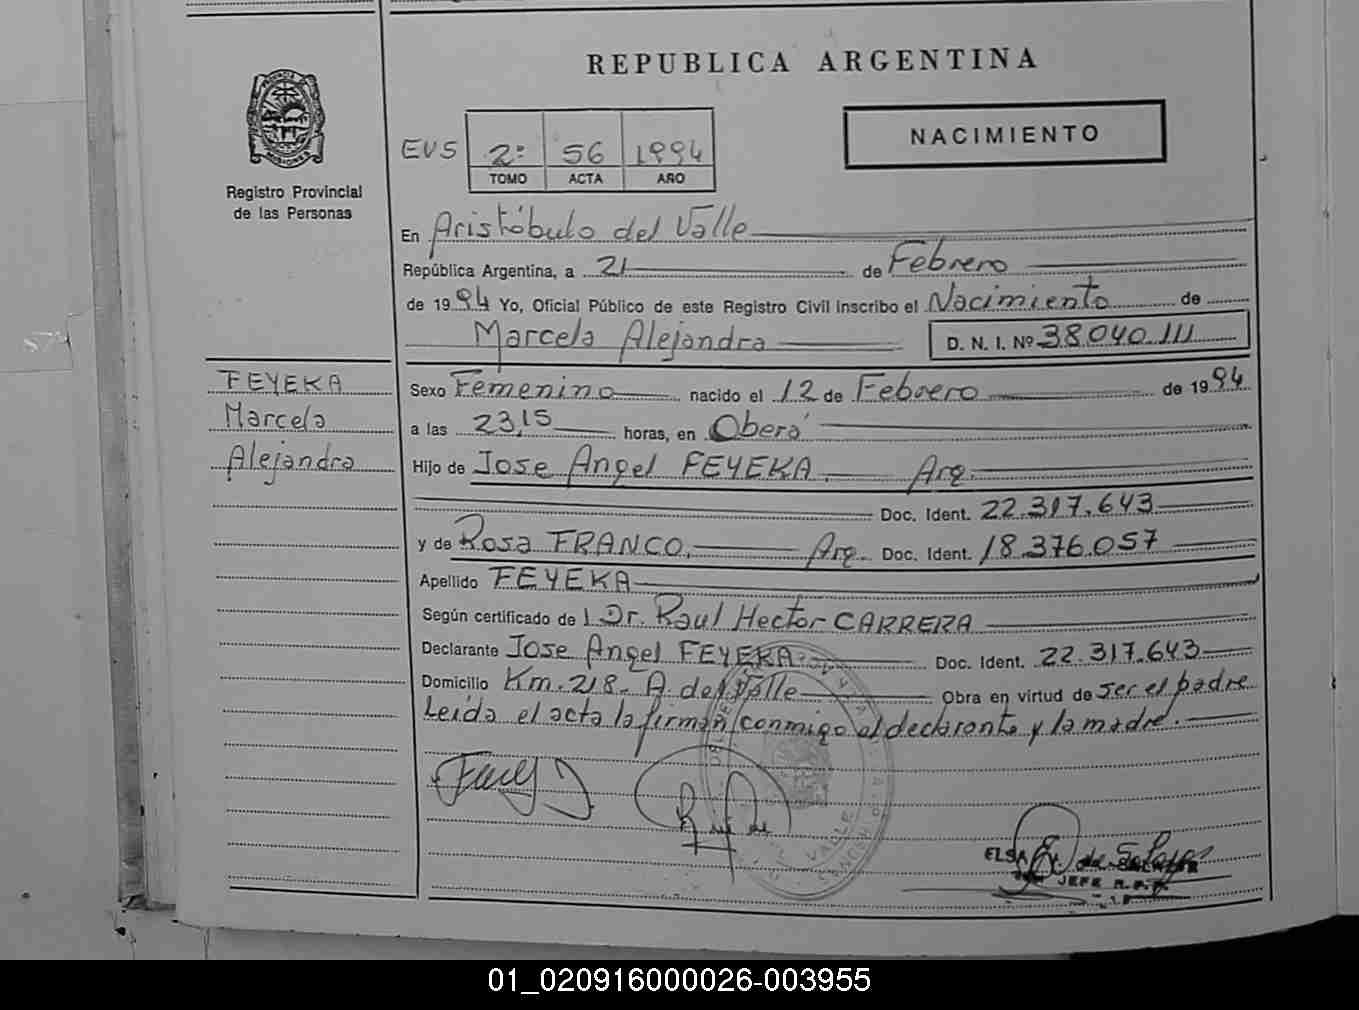 REPUBLICA ARGENTINA
PROVINCIA DE
MISIONES
Registro Provincial
de las Personas
NACIMIENTO
EVS 2º 56 1994
TOMO ACTA AÑO
En Aristóbulo del Valle
República Argentina, a 21 de Febrero
de 1994 Yo, Oficial Público de este Registro Civil inscribo el Nacimiento de
Marcela Alejandra D. N. I. Nº 38.040.111
FEYEKA
Marcela
Alejandra
Sexo Femenino nacido el 12 de Febrero de 1994
a las 23,15 horas, en Oberá
Hijo de Jose Angel FEYEKA. Arg.
Doc. Ident. 22.317.643
y de Rosa FRANCO. Arg. Doc. Ident. 18.376.057
Apellido FEYEKA
Según certificado de Dr. Raul Hector CARRERA
Declarante Jose Angel FEYEKA. Doc. Ident. 22.317.643
Domicilio Km. 218. A. del Valle Obra en virtud de ser el padre
Leída el acta la firman conmigo el declarante y la madre.
ELSA
JEFE R.P.P.
01_020916000026-003955